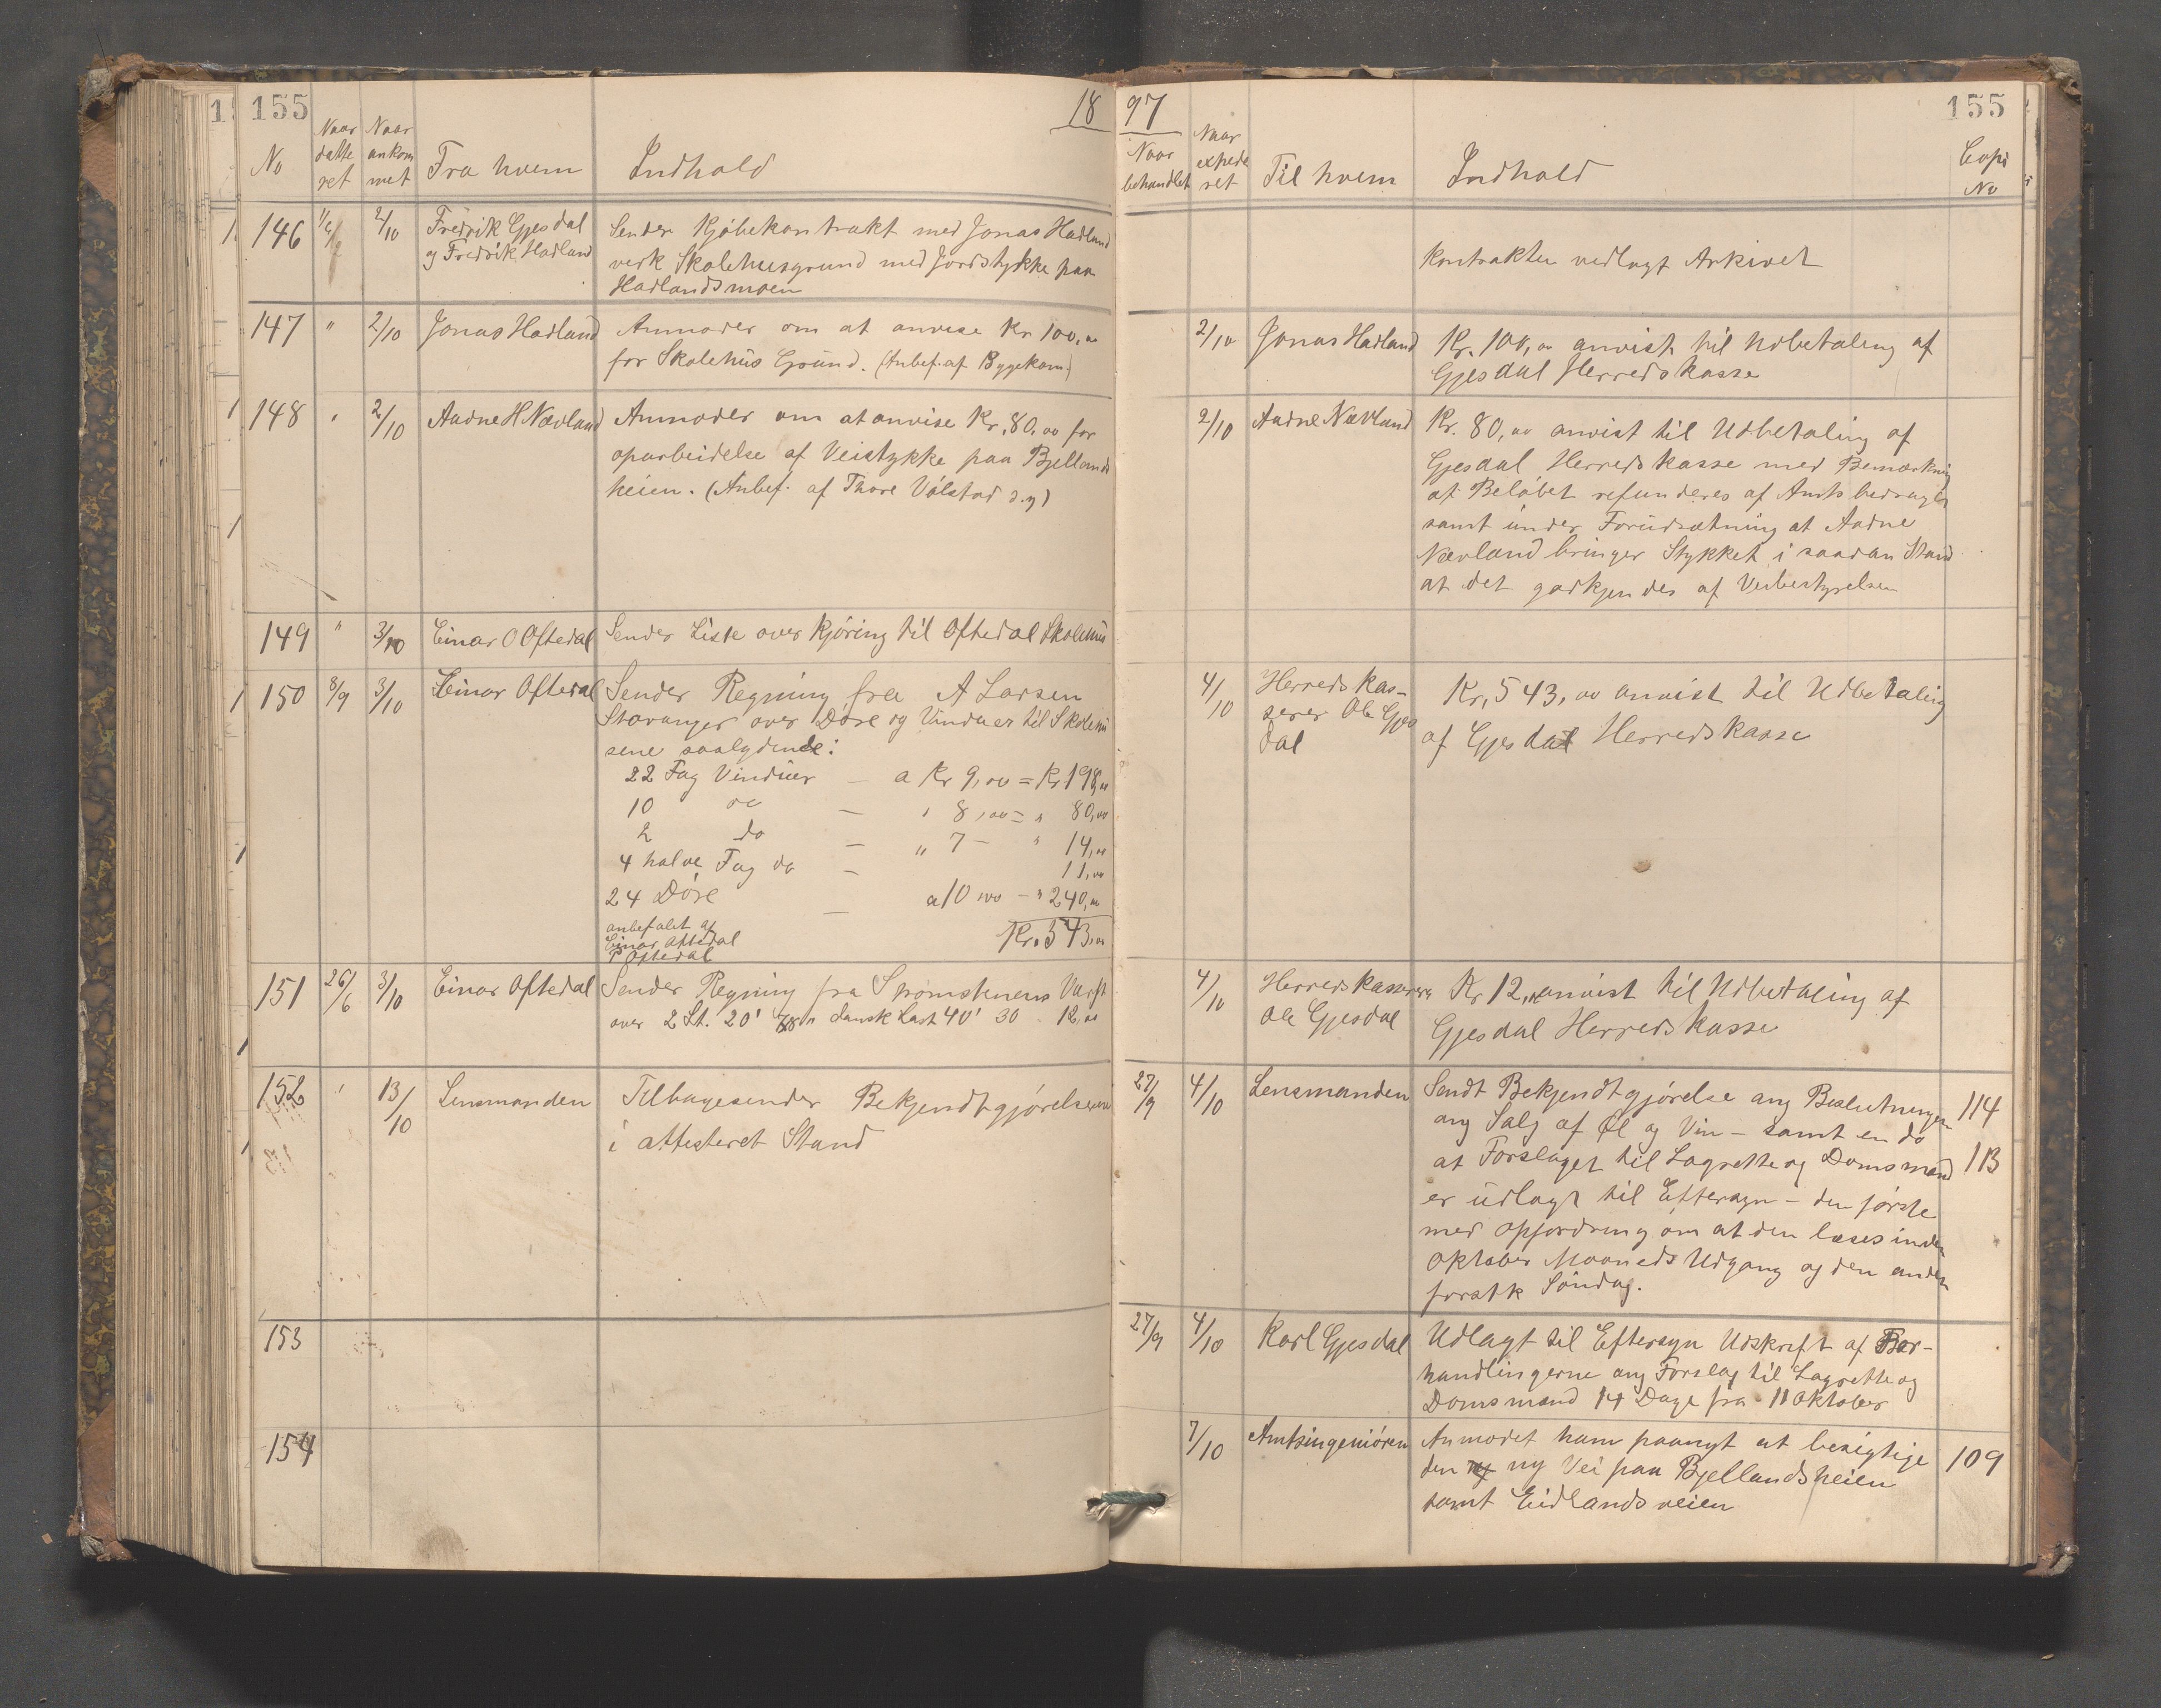 155
18
No
Naar datte ret
Naar ankom met
Fra hvem
Indhold
146
2/10
Fredrik Gjesdal
og Fredrik Hadland
Sender Kjöbekontrakt med Jonas Hadland
vedk Skolehusgrund med Jordstykke paa
Hadlandsmoen
147 " 2/10 Jonas Hadland
Anmoder om at anvise Kr 100,00
for Skolehus Grund. (Anbef. af Byggekom.)
148 " 2/10 Aadne H Nævland
Anmoder om at anvise Kr. 80,00 for
oparbeidelse af Veistykke paa Bjellands
heien. (Anbef. af Thore Völstad o.y)
149 " 3/10 Einar O Oftedal
Sender Liste over Kjöring til Oftedal Skolehus
150 8/9 3/10 Einar Oftedal
Sender Regning fra A Larsen
Stavanger over Döre og Vinduer til Skolehu
sene saalydende:
22 Fag Vinduer — a Kr 9,00 = Kr 198,00
10 do — " 8,00 = " 80,00
2 do — " 7 — " 14,00
4 halve Fag do — 11,00
24 Döre — a 10,00 — " 240,00
anbefalet af
Einar Oftedal
P Oftedal
Kr. 543,00
151 26/6 3/10 Einar Oftedal
Sender Regning fra Strömstenens Værft
over 2 St. 20' dansk Last 40' 30 12,00
152 " 13/10 Lensmanden
Tilbagesender Bekjendtgjörelserne
i attesteret Stand
153
154
97
155
Naar behandlet
Naar expede ret
Til hvem
Indhold
Copi No
Kontrakten vedlagt Arkivet
2/10 Jonas Hadland
Kr. 100,00 anvist til Udbetaling af
Gjesdal Herredskasse
2/10 Aadne Nævland
Kr. 80,00 anvist til Udbetaling af
Gjesdal Herredskasse med Bemærkning
at Belöbet refunderes af Amtsbedraget
samt under Forudsætning at Aadne
Nævland bringer Stykket i saadan Stand
at det godkjendes af Veibestyrelsen
4/10
Herredskas-
serer Ole Gjes
dal
Kr. 543,00 anvist til Udbetaling
af Gjesdal Herredskasse
4/10
Herredskasserer
Ole Gjesdal
Kr 12,00 anvist til Udbetaling af
Gjesdal Herredskasse
27/9 4/10 Lensmanden
Sendt Bekjendtgjörelse ang Beslutningen 114
ang Salg af Øl og Vin – samt en do
at Forslaget til Lagrette og Domsmænd 113
er udlagt til Eftersyn – den förste
med opfordring om at den læses inden
Oktober Maaneds Udgang og den anden
förstk Söndag.
27/9 4/10 Karl Gjesdal
Udlagt til Eftersyn Udskrift af For-
handlingerne ang Forslag til Lagrette og
Domsmænd 14 Dage fra 11 Oktober
7/10 Amtsingeniören
Anmodet ham paanyt at besigtige 109
den ny Vei paa Bjellandsheien
samt Eidlandsveien